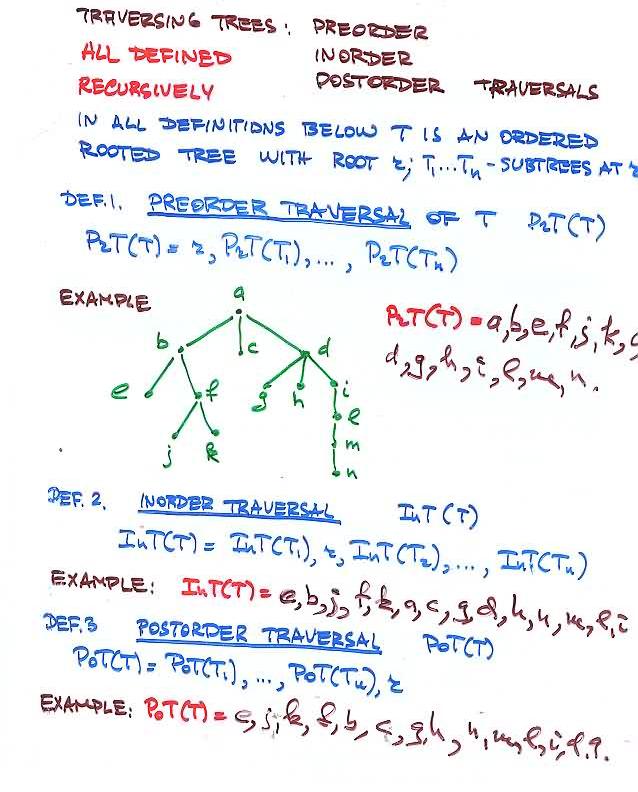 TRAVERSING TREES: PREORDER
ALL DEFINED INORDER
RECURSIVELY POSTORDER TRAVERSALS
IN ALL DEFINITIONS BELOW T IS AN ORDERED
ROOTED TREE WITH ROOT r; T₁...Tₙ - SUBTREES AT r
DEF.1. PREORDER TRAVERSAL OF T PrT(T)
PrT(T) = r, PrT(T₁), ..., PrT(Tₙ)
EXAMPLE
a
b
c
d
e
f
g
h
i
j
k
l
m
n
PrT(T) = a, b, e, f, j, k, c
d, g, h, i, l, m, n.
DEF. 2. INORDER TRAVERSAL InT(T)
InT(T) = InT(T₁), r, InT(T₂), ..., InT(Tₙ)
EXAMPLE: InT(T) = e, b, j, f, k, a, c, g, d, h, n, m, l, i
DEF.3 POSTORDER TRAVERSAL PoT(T)
PoT(T) = PoT(T₁), ..., PoT(Tₙ), r
EXAMPLE: PoT(T) = e, j, k, f, b, c, g, h, n, m, l, i, d, a.